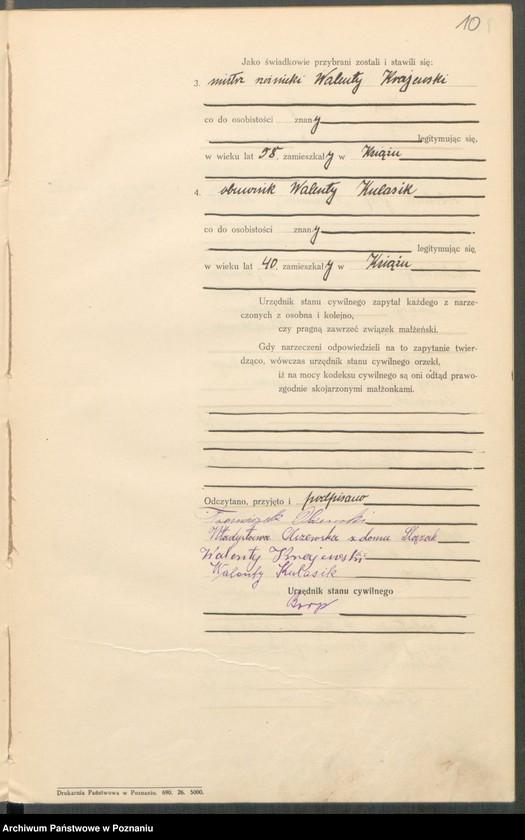 10
Jako świadkowie przybrani zostali i stawili się:
3. mistrz Walenty Krajewski
co do osobistości znany
legitymując się,
w wieku lat 58, zamieszkały w Książu
4. obuwnik Walenty Kulasik
co do osobistości znany
legitymując się,
w wieku lat 40, zamieszkały w Książu
Urzędnik stanu cywilnego zapytał każdego z narze-
czonych z osobna i kolejno,
czy pragną zawrzeć związek małżeński.
Gdy narzeczeni odpowiedzieli na to zapytanie twier-
dząco, wówczas urzędnik stanu cywilnego orzekł,
iż na mocy kodeksu cywilnego są oni odtąd prawo-
zgodnie skojarzonymi małżonkami.
Odczytano, przyjęto i podpisano
Władysława z domu
Walenty Krajewski
Walenty Kulasik
Urzędnik stanu cywilnego
Drukarnia Państwowa w Poznaniu. 690. 26. 5000.
Archiwum Państwowe w Poznaniu